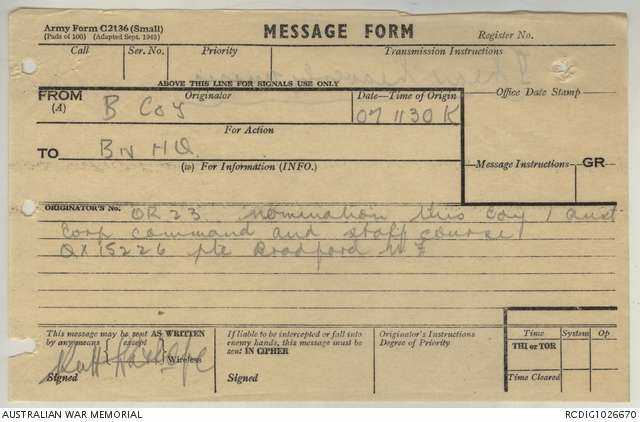 Army Form C2136 (Small)
(Pads of 100) (Adapted Sept. 1943)
MESSAGE FORM
Register No.
Call
Ser. No.
Priority
Transmission Instructions
ABOVE THIS LINE FOR SIGNALS USE ONLY
FROM
(A)
Originator
B Coy
Date—Time of Origin
07 1130 K
Office Date Stamp
For Action
TO
BN HQ
(W) For Information (INFO.)
Message Instructions
GR
ORIGINATOR'S No. OR 23 nomination this Coy 1 Aust
Corp command and staff course
QX15226 pte Bradford
This message may be sent AS WRITTEN
by any means
except
Wireless
Signed
If liable to be intercepted or fall into
enemy hands, this message must be
sent IN CIPHER
Signed
Originator's Instructions
Degree of Priority
Time
System
Op
THI or TOR
Time Cleared
AUSTRALIAN WAR MEMORIAL
RCDIG1026670